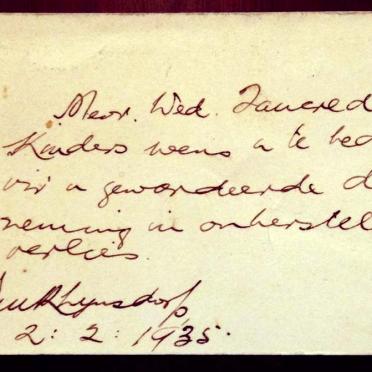 Mevr. Wed. Tancred
Kinders wens u te bed
vir u gewardeerde d
neming in onherstel
verlies.
Van Rhynsdorp
2: 2: 1935.